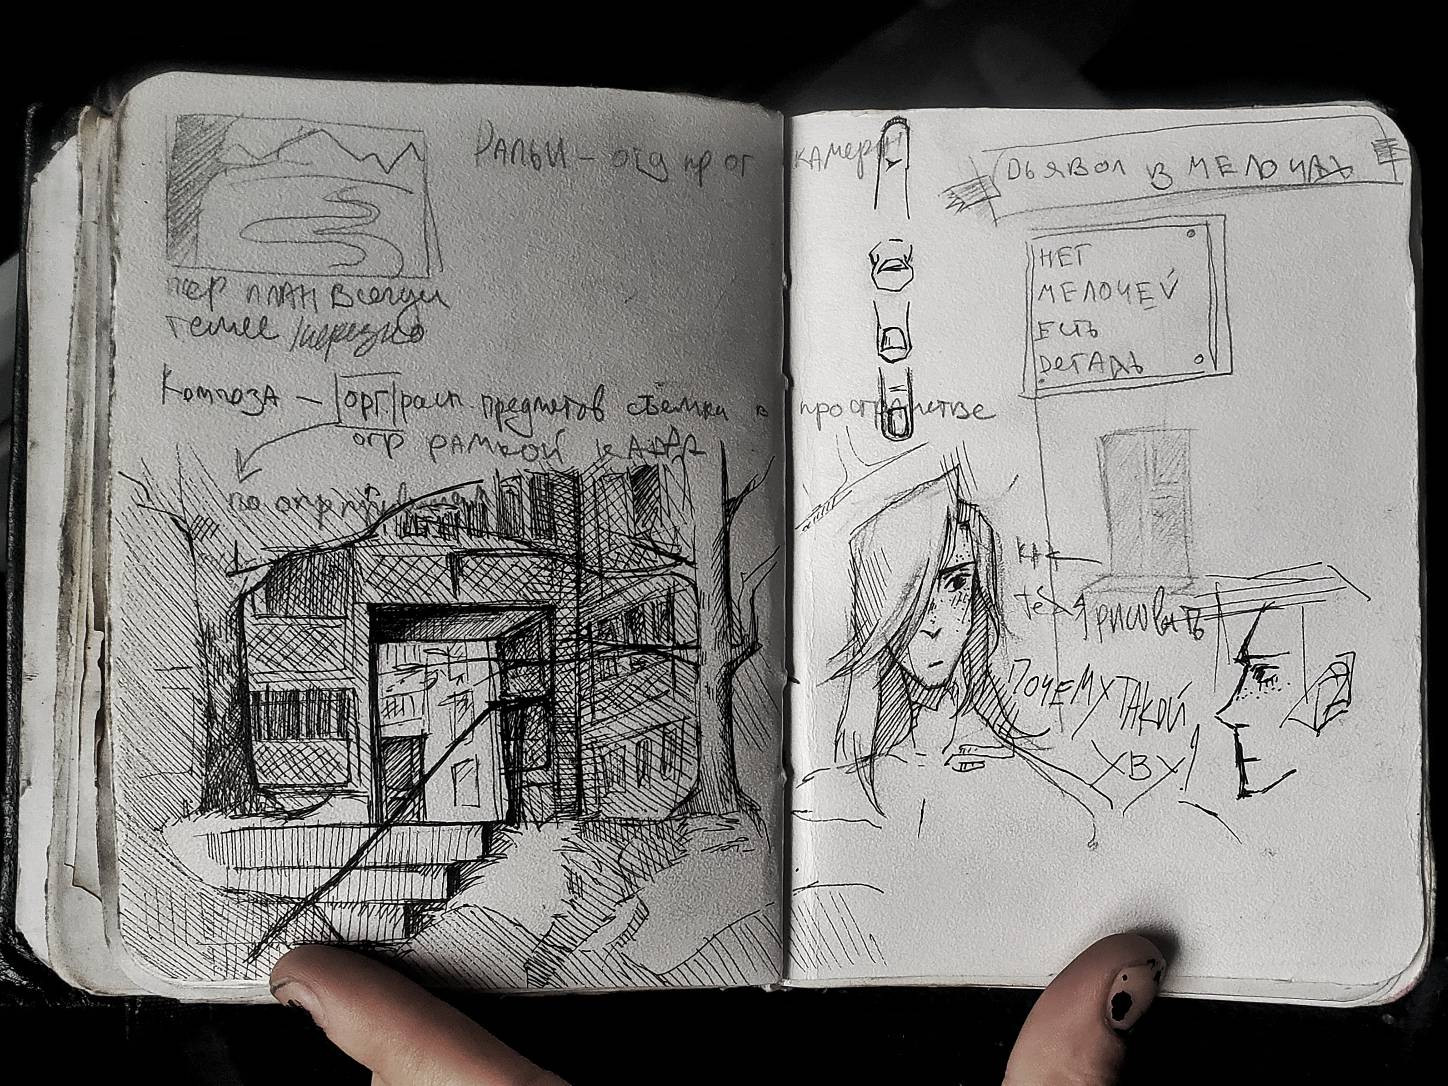 РАЛЬИ - отд пр от камеры
пер план всегда
темее /нерезко
Композа - орг/расп. предметов съемки в пространстве
огр рамкой кадра
по
ДЬЯВОЛ В МЕЛОЧАХ
НЕТ
МЕЛОЧЕЙ
ЕСТЬ
ДЕТАЛЬ
КАК
тебя рисовать
ПОЧЕМУ ТАКОЙ